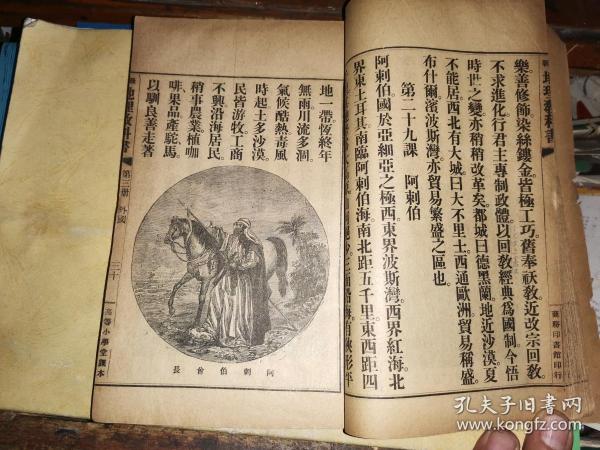 地理教科書
樂善修飾。染絲鏤金。皆極工巧。舊奉祆敎。近改宗回敎。
不求進化。行君主專制政體。以回敎經典爲國制。今悟
時世之變。亦稍稍改革矣。都城曰德黑蘭。地近沙漠。夏
不能居。西北有大城。曰大不里士。西通歐洲。貿易稱盛。
布什爾濱波斯灣。亦貿易繁盛之區也。
第二十九課　阿剌伯
阿剌伯國於亞細亞之極西。東界波斯灣。西界紅海。北
界東土耳其。南臨阿剌伯海。南北距五千里。東西距四
三面沿海。有狹形平
地一帶。恆終年
無雨。川流多涸。
氣候酷熱。毒風
時起。土多沙漠。
民皆游牧。工商
不興。沿海居民。
稍事農業。植咖
啡果品。產駝馬。
以馴良善走著
阿剌伯酋長
地理敎科書
第三册 外國
三十
高等小學堂課本
商務印書館印行
孔夫子旧书网
www.kongfz.com